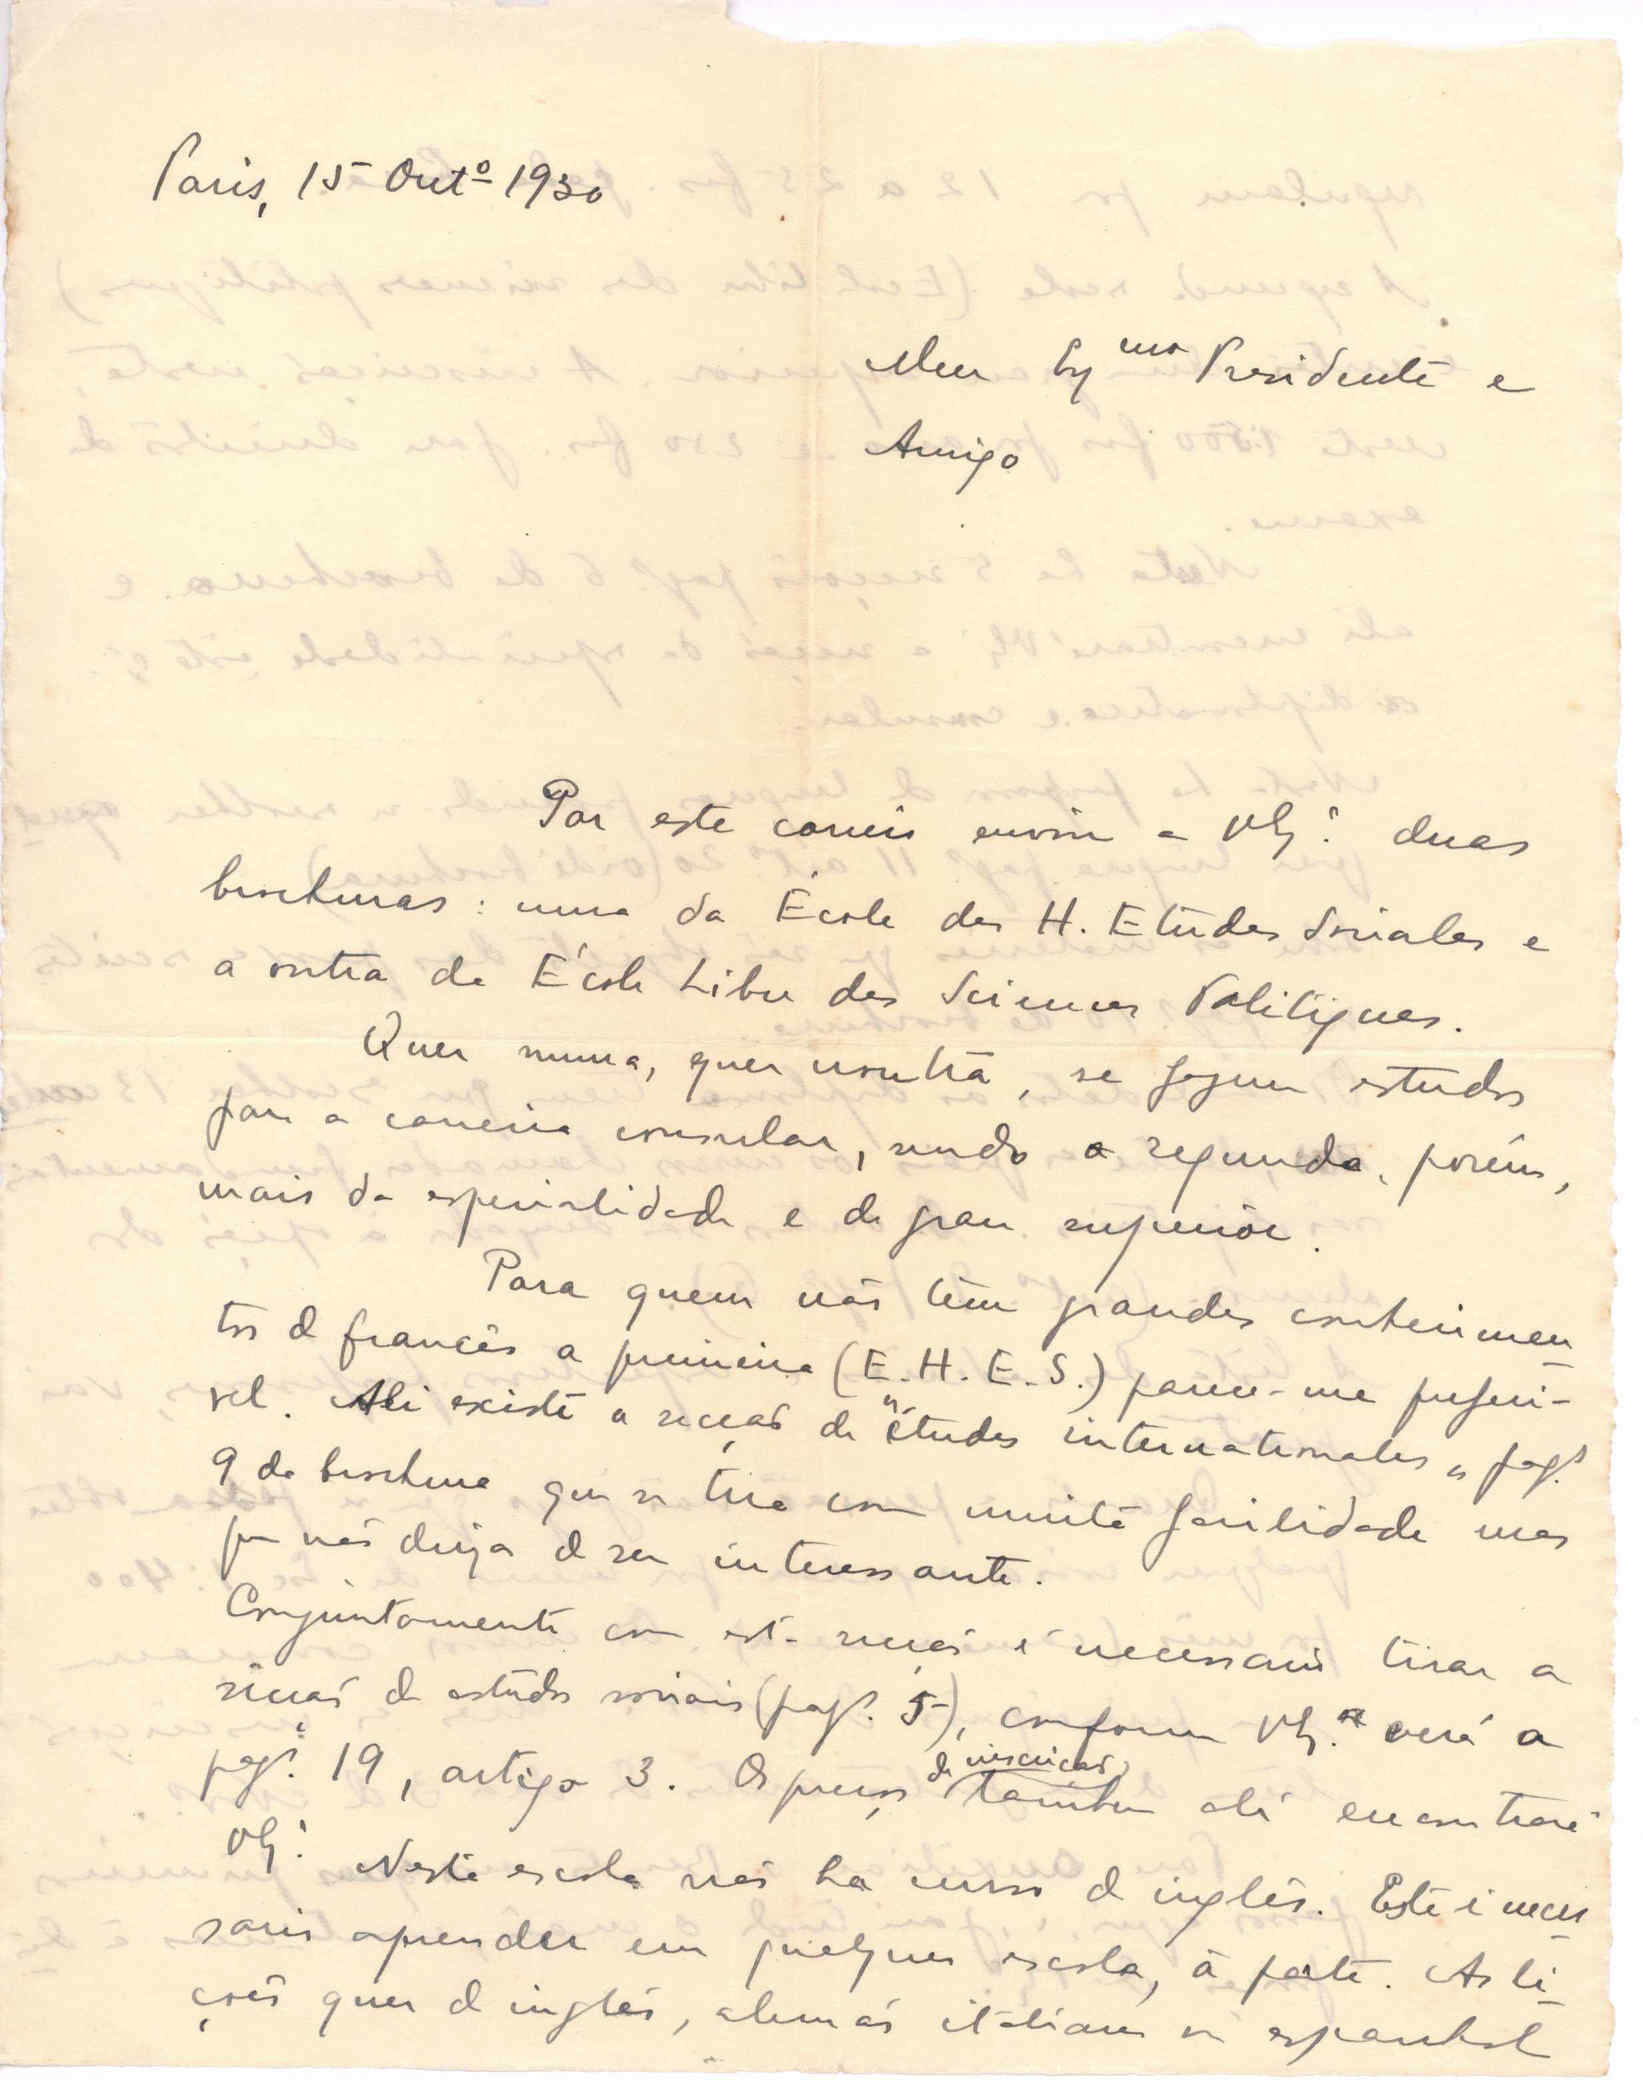 Paris, 15 Outº 1930
Meu Exmo Presidente e
Amigo
Por este correio envio a VEx.ª duas
brochuras: uma da École des H. Etudes Sociales e
a outra da École Libre des Sciences Politiques.
Quer numa, quer noutra, se fazem estudos
para a carreira consular, sendo a segunda, porém,
mais da especialidade e de grau superior.
Para quem não têm grandes conhecimen
tos de francês a primeira (E. H. E. S.) parece-me preferi-
vel. Ali existe a secção de "études internationales" pag.ª
9 da brochura que se tira com muita facilidade mas
que não deixa de ser interessante.
Conjuntamente com esta secção é necessario tirar a
secção de estudos sociais (pag.ª 5), conforme VEx.ª verá a
pag.ª 19, artigo 3. Os preços de inscrição tambem ali encontrará
VEx.ª Nesta escola não ha curso de inglês. Este é neces
sario aprender em qualquer escola, á parte. As li-
ções quer de inglês, alemão italiano ou espanhol